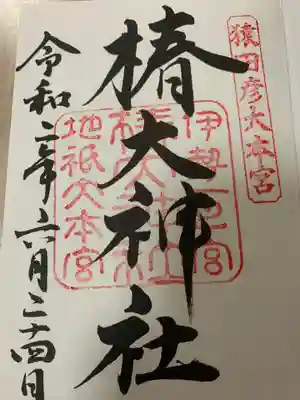 猿田彦大本宮
椿大神社
伊勢一之宮
地祇大本宮
令和二年六月二十四日